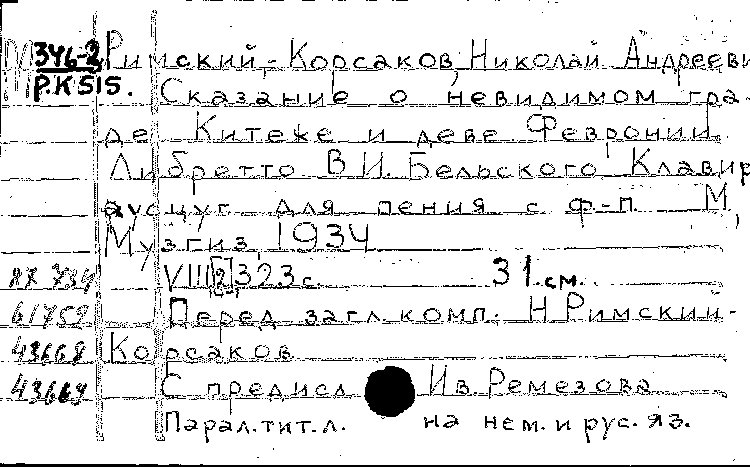 346-2 Римский-Корсаков, Николай Андрееви
Р.К 515.
Сказание о невидимом гра-
де Китеже и деве Февронии.
Либретто В.И. Бельского Клавир
для пения с ф-п. М,
Музгиз, 1934
VIII [2] 323 с. 31 см.
61759 Перед загл. комп. Н Римский-
43668 Корсаков
43669 С предисл Ив. Ремезова
Парал. тит. л. на нем. и рус. яз.